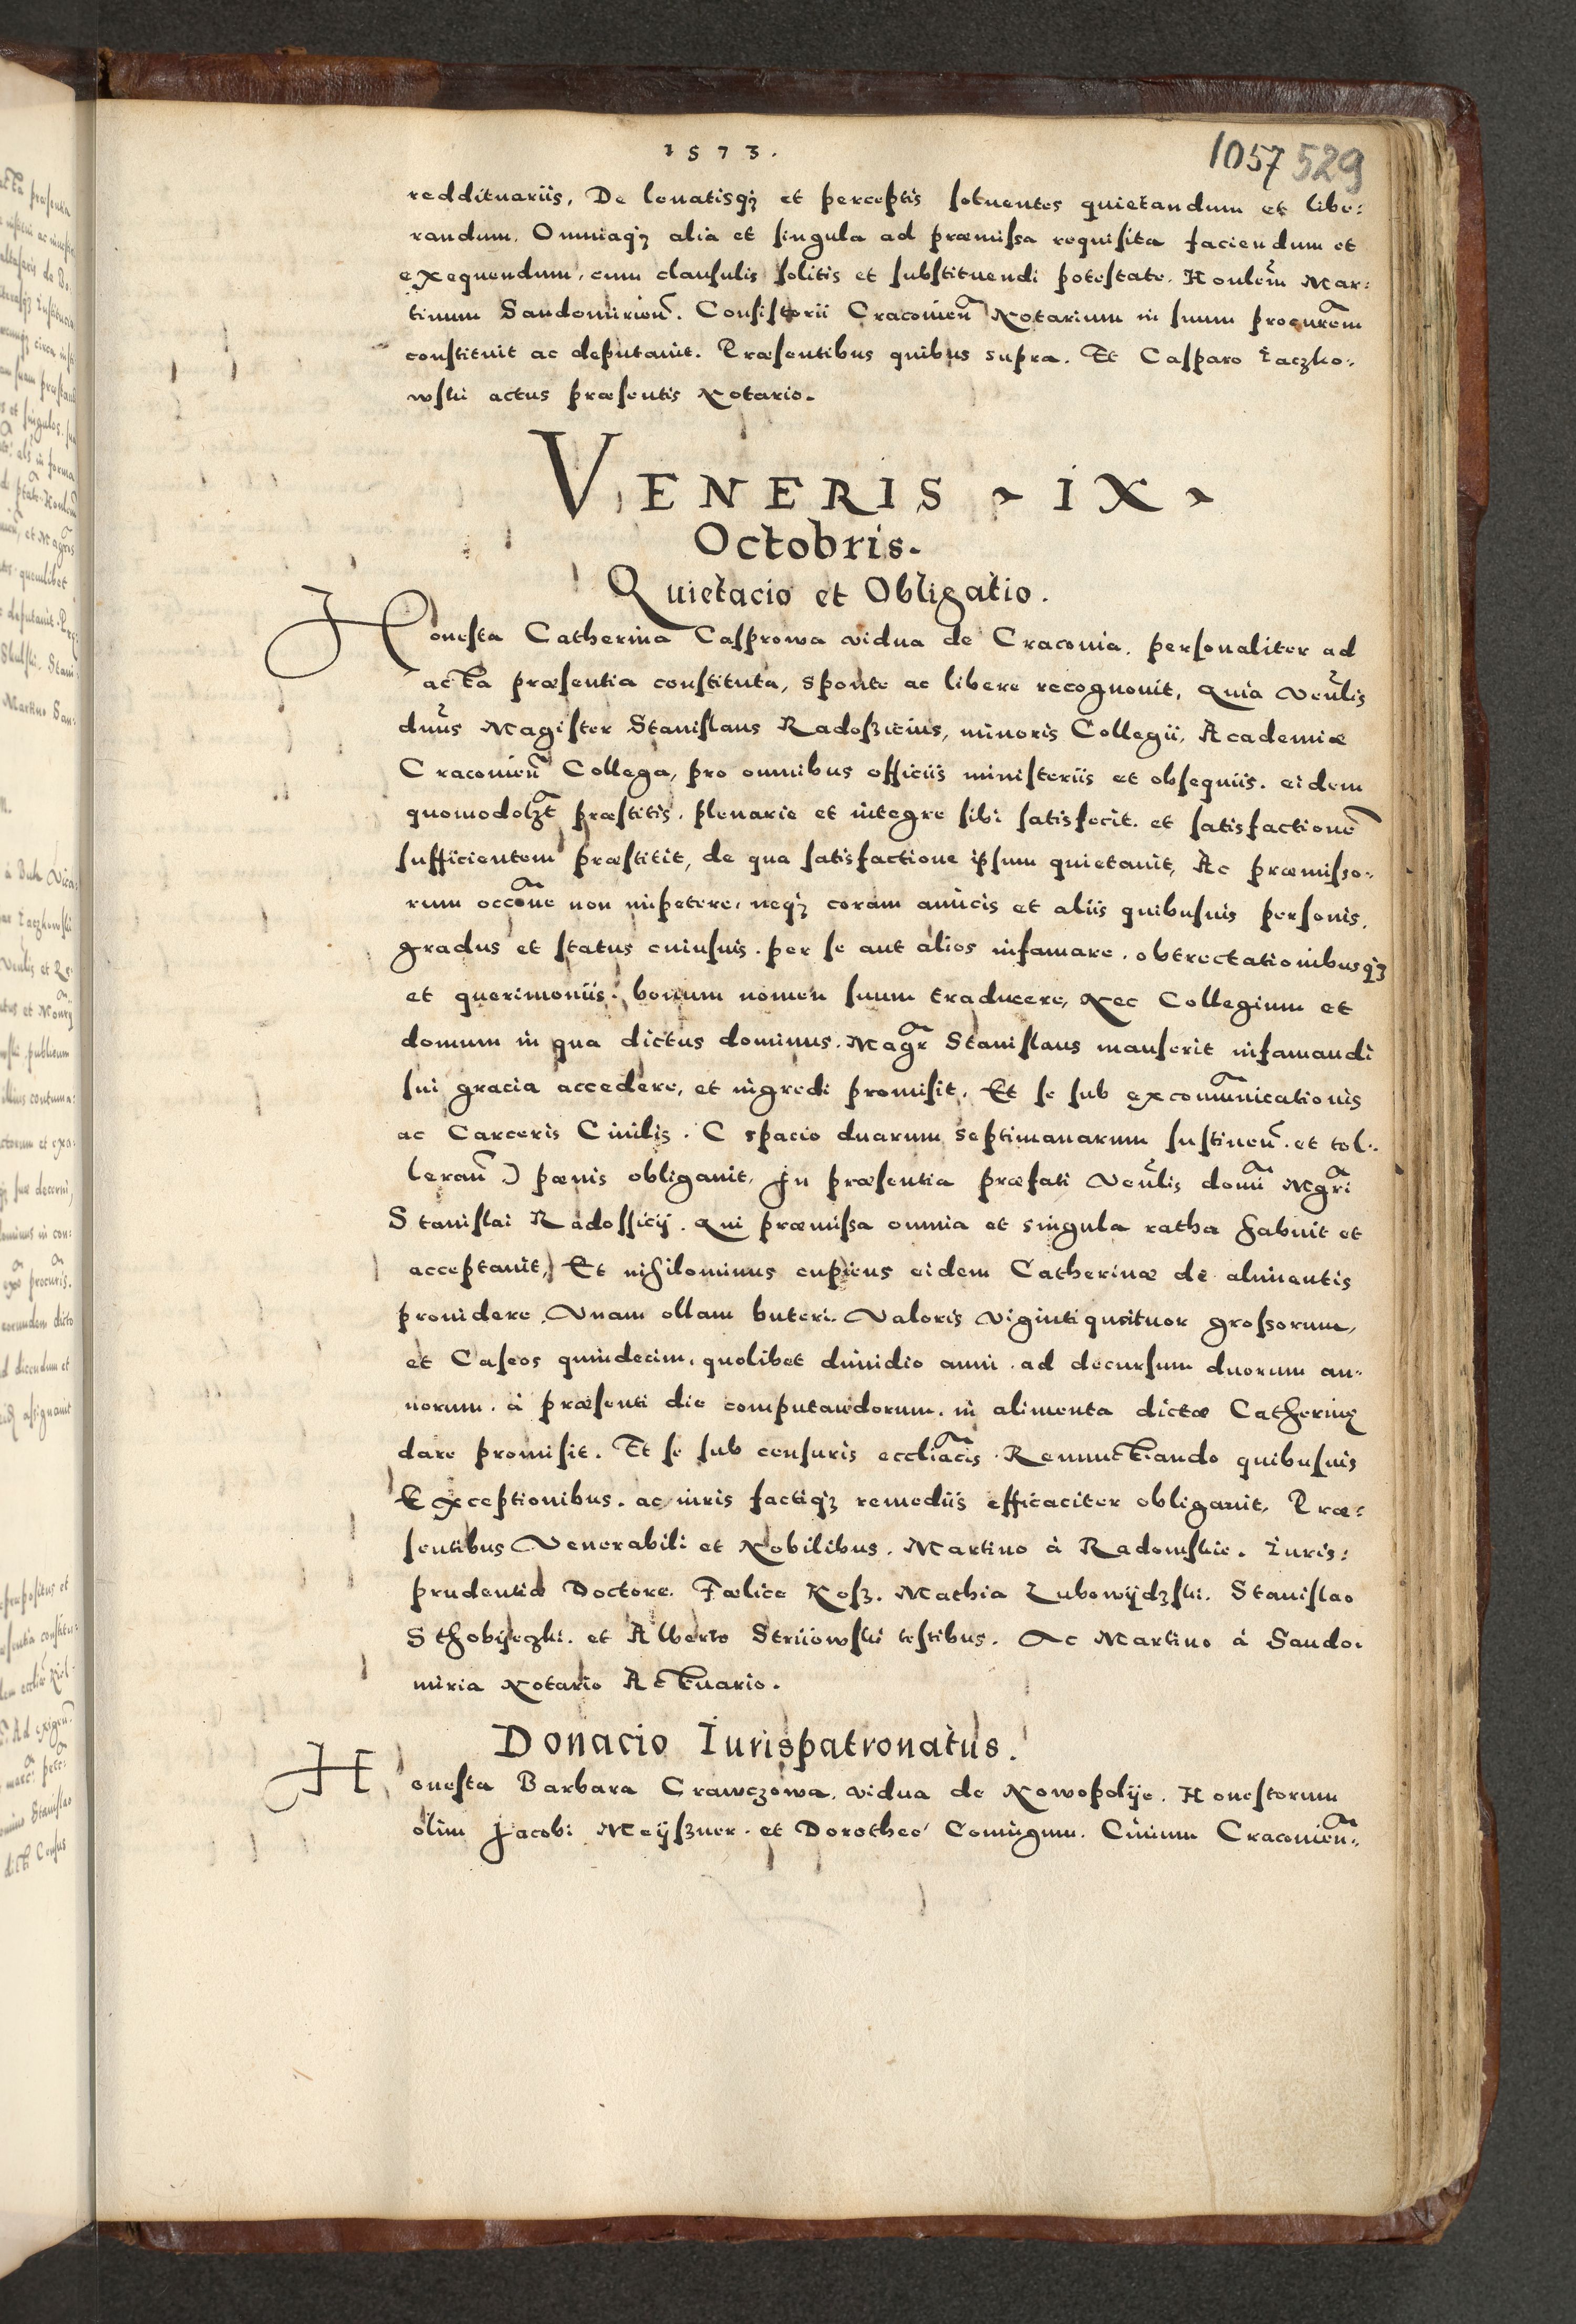 1573.
1057 529
reddituariis, De leuatisqȝ et perceptis soluentes quietandum et libe:
randum. Omniaqȝ alia et singula ad præmissa requisita faciendum et
exequendum, cum clausulis solitis et substituendi potestate. Honlem̃ Mar:
tinum Sandomirien̄. Consistorii Cracouien̄ Notarium in suum procurem̃
constituit ac deputauit. Præsentibus quibus supra. Et Casparo Łaczko:
wski actus præsentis Notario.
VENERIS ~ IX ~
Octobris.
Quietacio et Obligatio.
Honesta Catherina Casprowa vidua de Cracouia, personaliter ad
acta præsentia constituta, sponte ac libere recognouit, quia Venlis̃
dnus̃ Magister Stanislaus Radoszicius, minoris Collegii, Academiæ
Cracouien̄ Collega, pro omnibus officiis ministeriis et obsequiis. eidem
quomodolȝt̃ præstitis, plenarie et integre sibi satisfecit. et satisfactionē
sufficientem præstitit, de qua satisfactione ipsum quietauit, Ac præmisso:
rum occõne non impetere, neqȝ coram amicis et aliis quibusuis personis,
gradus et status cuiusuis. per se aut alios infamare. obtrectationibusqȝ
et querimoniis. bonum nomen suum traducere, Nec Collegium et
domum in qua dictus dominus. Magr̃ Stanislaus manserit infamandi
sui gracia accedere, et ingredi promisit. Et se sub excom̃unicationis
ac Carceris Ciuilis. ( spacio duarum septimanarum sustinen̄. et tol:
leran̄ ) pœnis obligauit, In præsentia præfati Venlis̃ domi̅ Mgrĩ
Stanislai Radossicij. qui præmissa omnia et singula ratha habuit et
acceptauit, Et nihilominus cupiens eidem Catherinæ de alimentis
prouidere. Vnam ollam buteri. Valoris viginti quatuor grossorum,
et Caseos quindecim, quolibet dimidio anni. ad decursum duorum an:
norum. à præsenti die computandorum. in alimenta dictæ Catherinę
dare promisit. Et se sub censuris eccliãcis. Renunctiando quibusuis
Exceptionibus. ac iuris factiqȝ remediis efficaciter obligauit, Præ:
sentibus Venerabili et Nobilibus. Martino à Radomskie. Iuris:
prudentiæ Doctore. Fœlice Kosz. Mathia Lubowÿdzski. Stanislao
Sthobÿeczki. et Alberto Striiowski testibus. Ac Martino à Sando:
miria Notario Actuario.
Donacio Iurispatronatus.
Honesta Barbara Crawczowa. vidua de Nowopolÿe. Honestorum
olim Jacobi Meÿszner. et Dorotheę Coniugum. Ciuium Cracouien̄: